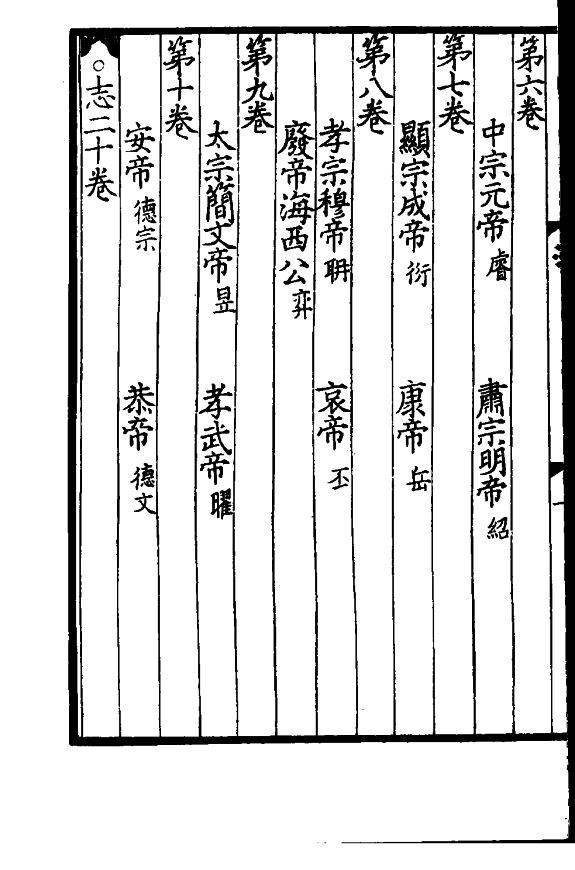 第六卷
中宗元帝 睿 肅宗明帝 紹
第七卷
顯宗成帝 衍 康帝 岳
第八卷
孝宗穆帝 聃 哀帝 丕
廢帝海西公 弈
第九卷
太宗簡文帝 昱 孝武帝 曜
第十卷
安帝 德宗 恭帝 德文
○志二十卷